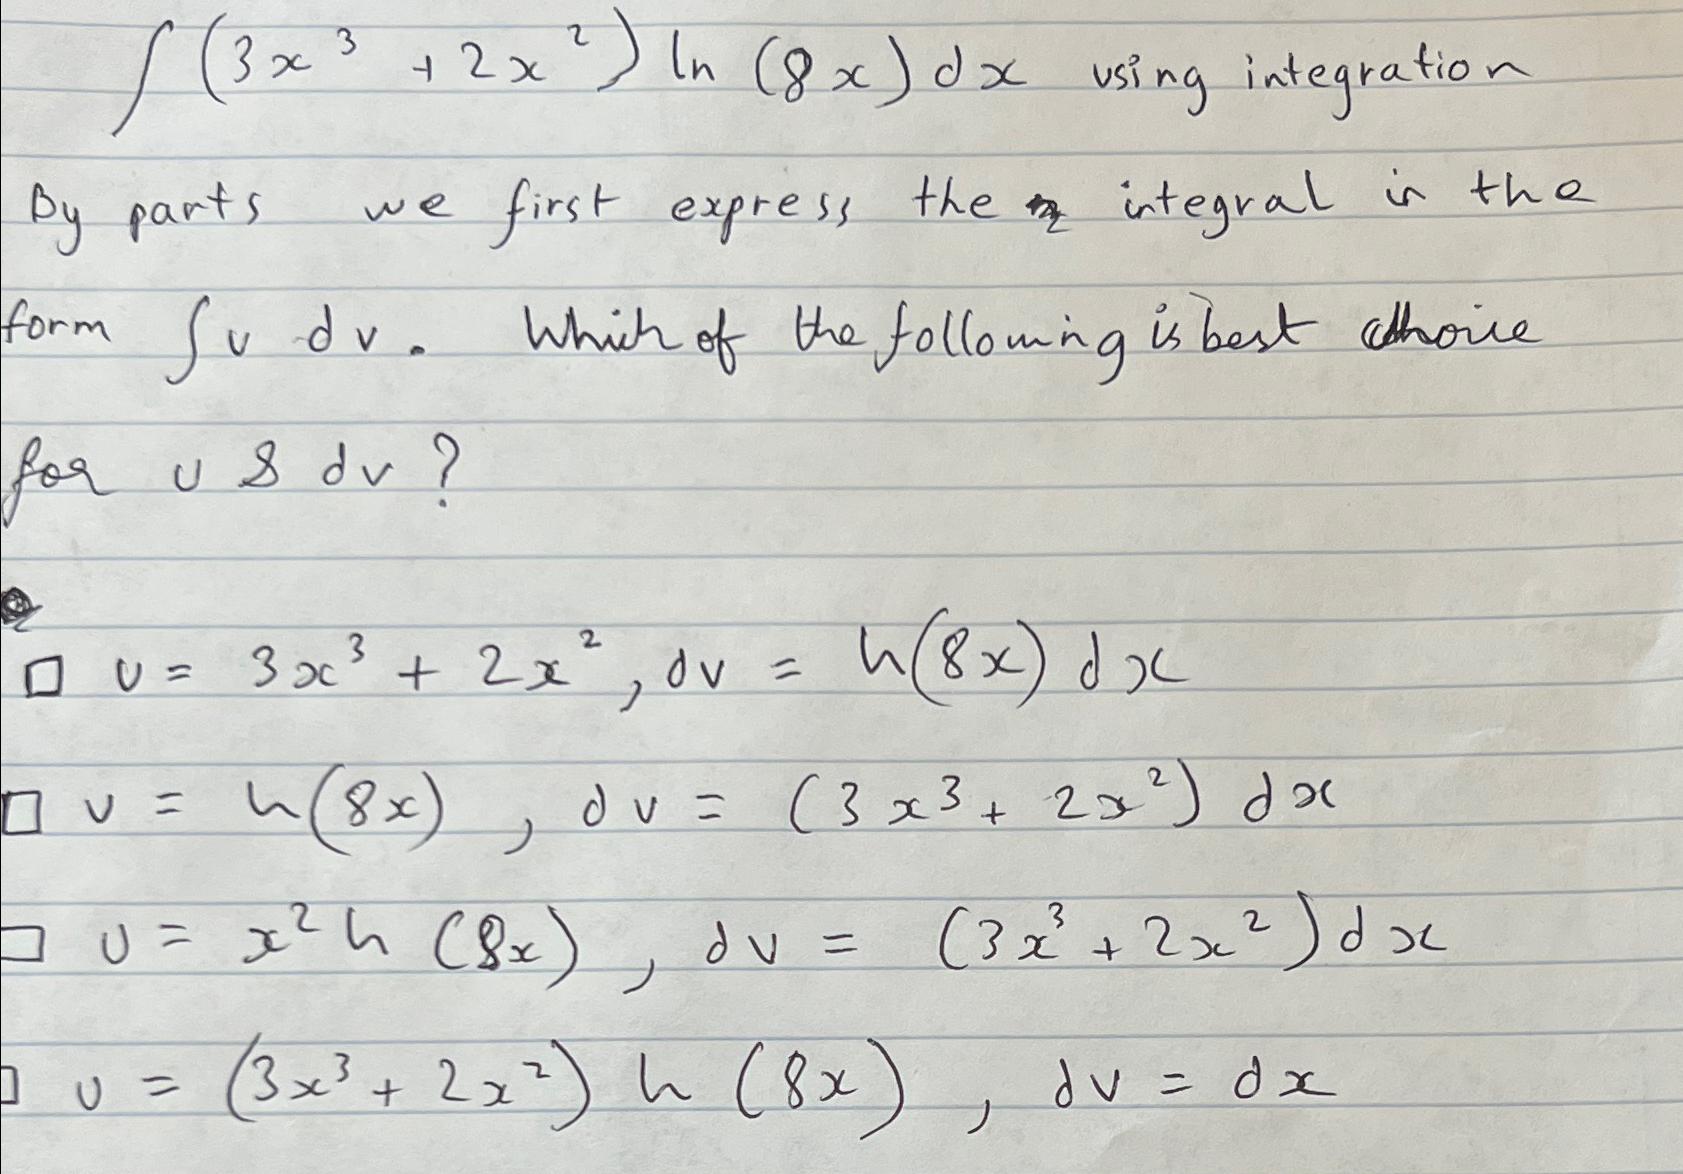 ∫ (3x³ + 2x²) ln (8x) dx using integration
By parts we first express the integral in the
form ∫ u dv. Which of the following is best choice
for u & dv?
□ u = 3x³ + 2x², dv = ln(8x) dx
□ u = ln(8x), dv = (3x³ + 2x²) dx
□ u = x² ln (8x), dv = (3x³ + 2x²) dx
□ u = (3x³ + 2x²) ln (8x), dv = dx